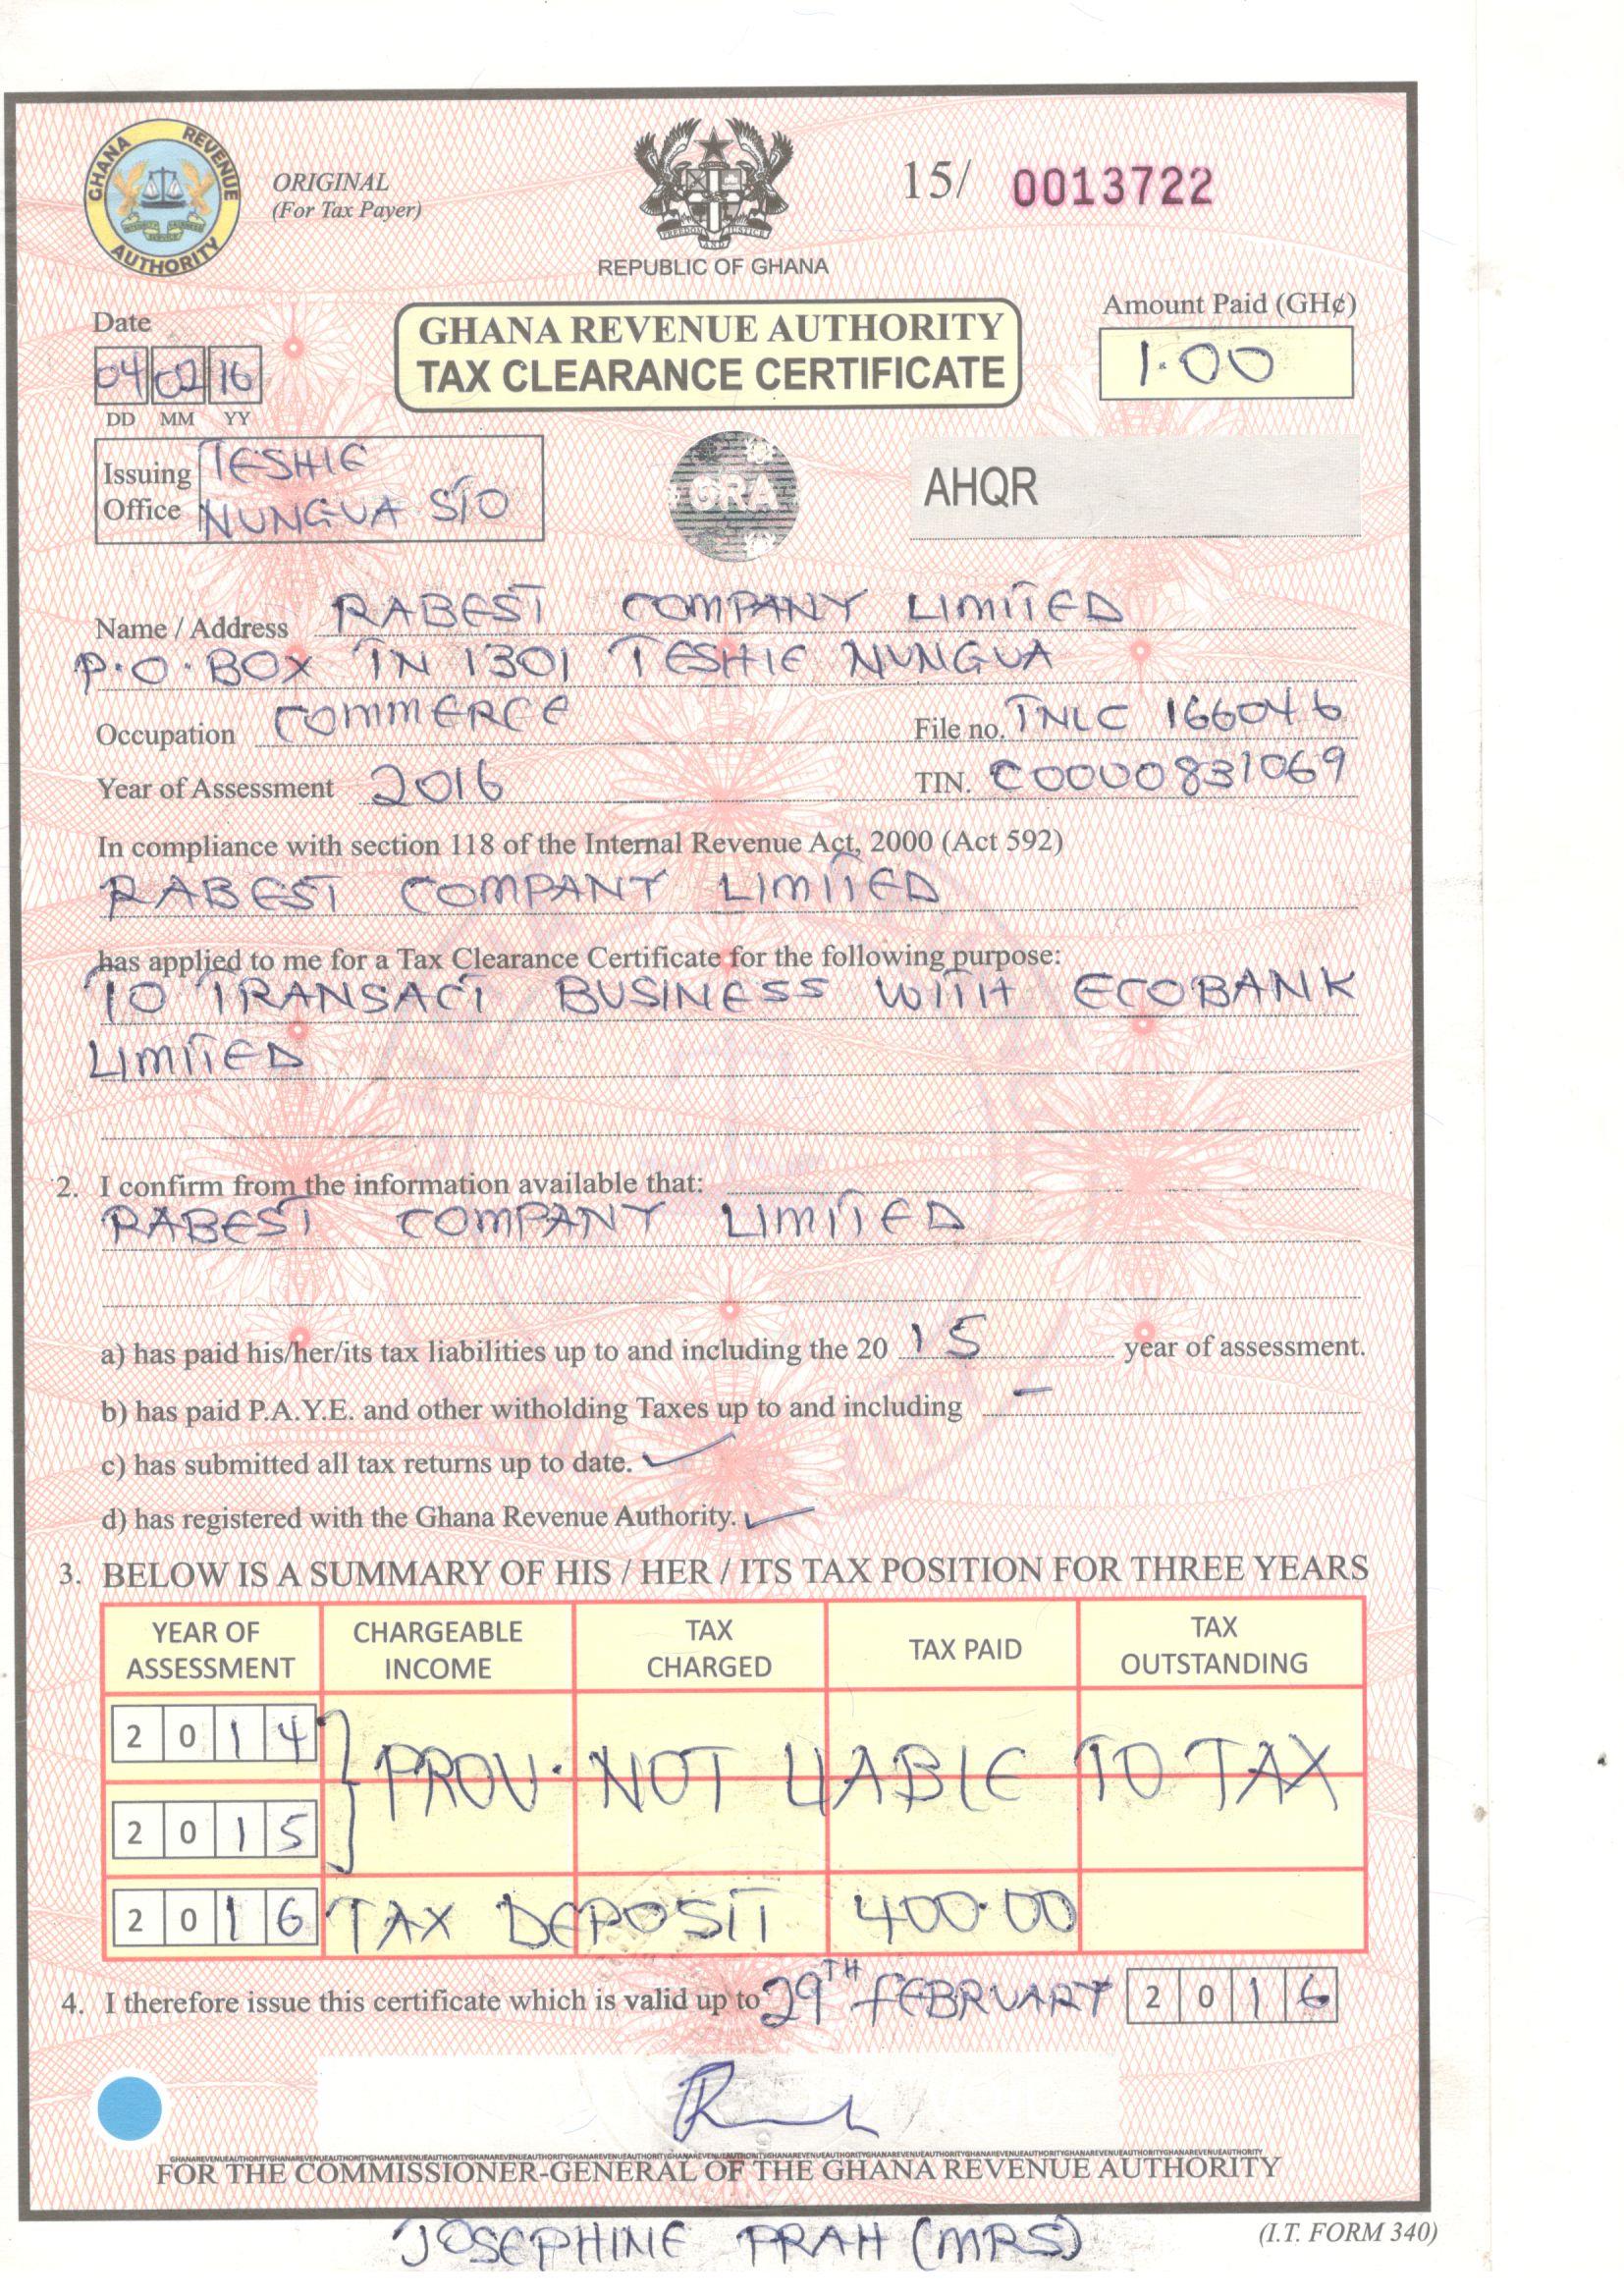 GHANA REVENUE AUTHORITY
ORIGINAL
(For Tax Payer)
FREEDOM AND JUSTICE
REPUBLIC OF GHANA
15/ 0013722
Date
04 02 16
DD MM YY
GHANA REVENUE AUTHORITY
TAX CLEARANCE CERTIFICATE
Amount Paid (GH¢)
1.00
Issuing Office TESHIE
NUNGUA STO
GRA
AHQR
Name / Address RABEST COMPANY LIMITED
P.O. BOX TN 1301 TESHIE NUNGUA
Occupation COMMERCE File no. TNLC 166046
Year of Assessment 2016 TIN. C0000831069
In compliance with section 118 of the Internal Revenue Act, 2000 (Act 592)
RABEST COMPANY LIMITED
has applied to me for a Tax Clearance Certificate for the following purpose:
TO TRANSACT BUSINESS WITH ECOBANK
LIMITED
2. I confirm from the information available that:
RABEST COMPANY LIMITED
a) has paid his/her/its tax liabilities up to and including the 20 15 year of assessment.
b) has paid P.A.Y.E. and other witholding Taxes up to and including –
c) has submitted all tax returns up to date. ✓
d) has registered with the Ghana Revenue Authority. ✓
3. BELOW IS A SUMMARY OF HIS / HER / ITS TAX POSITION FOR THREE YEARS
YEAR OF ASSESSMENT CHARGEABLE INCOME TAX CHARGED TAX PAID TAX OUTSTANDING
2014
} PROV. NOT LIABLE TO TAX
2015
2016 TAX DEPOSIT 400.00
4. I therefore issue this certificate which is valid up to 29TH FEBRUARY 2016
GHANAREVENUEAUTHORITYGHANAREVENUEAUTHORITYGHANAREVENUEAUTHORITYGHANAREVENUEAUTHORITYGHANAREVENUEAUTHORITYGHANAREVENUEAUTHORITYGHANAREVENUEAUTHORITYGHANAREVENUEAUTHORITYGHANAREVENUEAUTHORITYGHANAREVENUEAUTHORITY
FOR THE COMMISSIONER-GENERAL OF THE GHANA REVENUE AUTHORITY
JOSEPHINE PRAH (MRS)
(I.T. FORM 340)